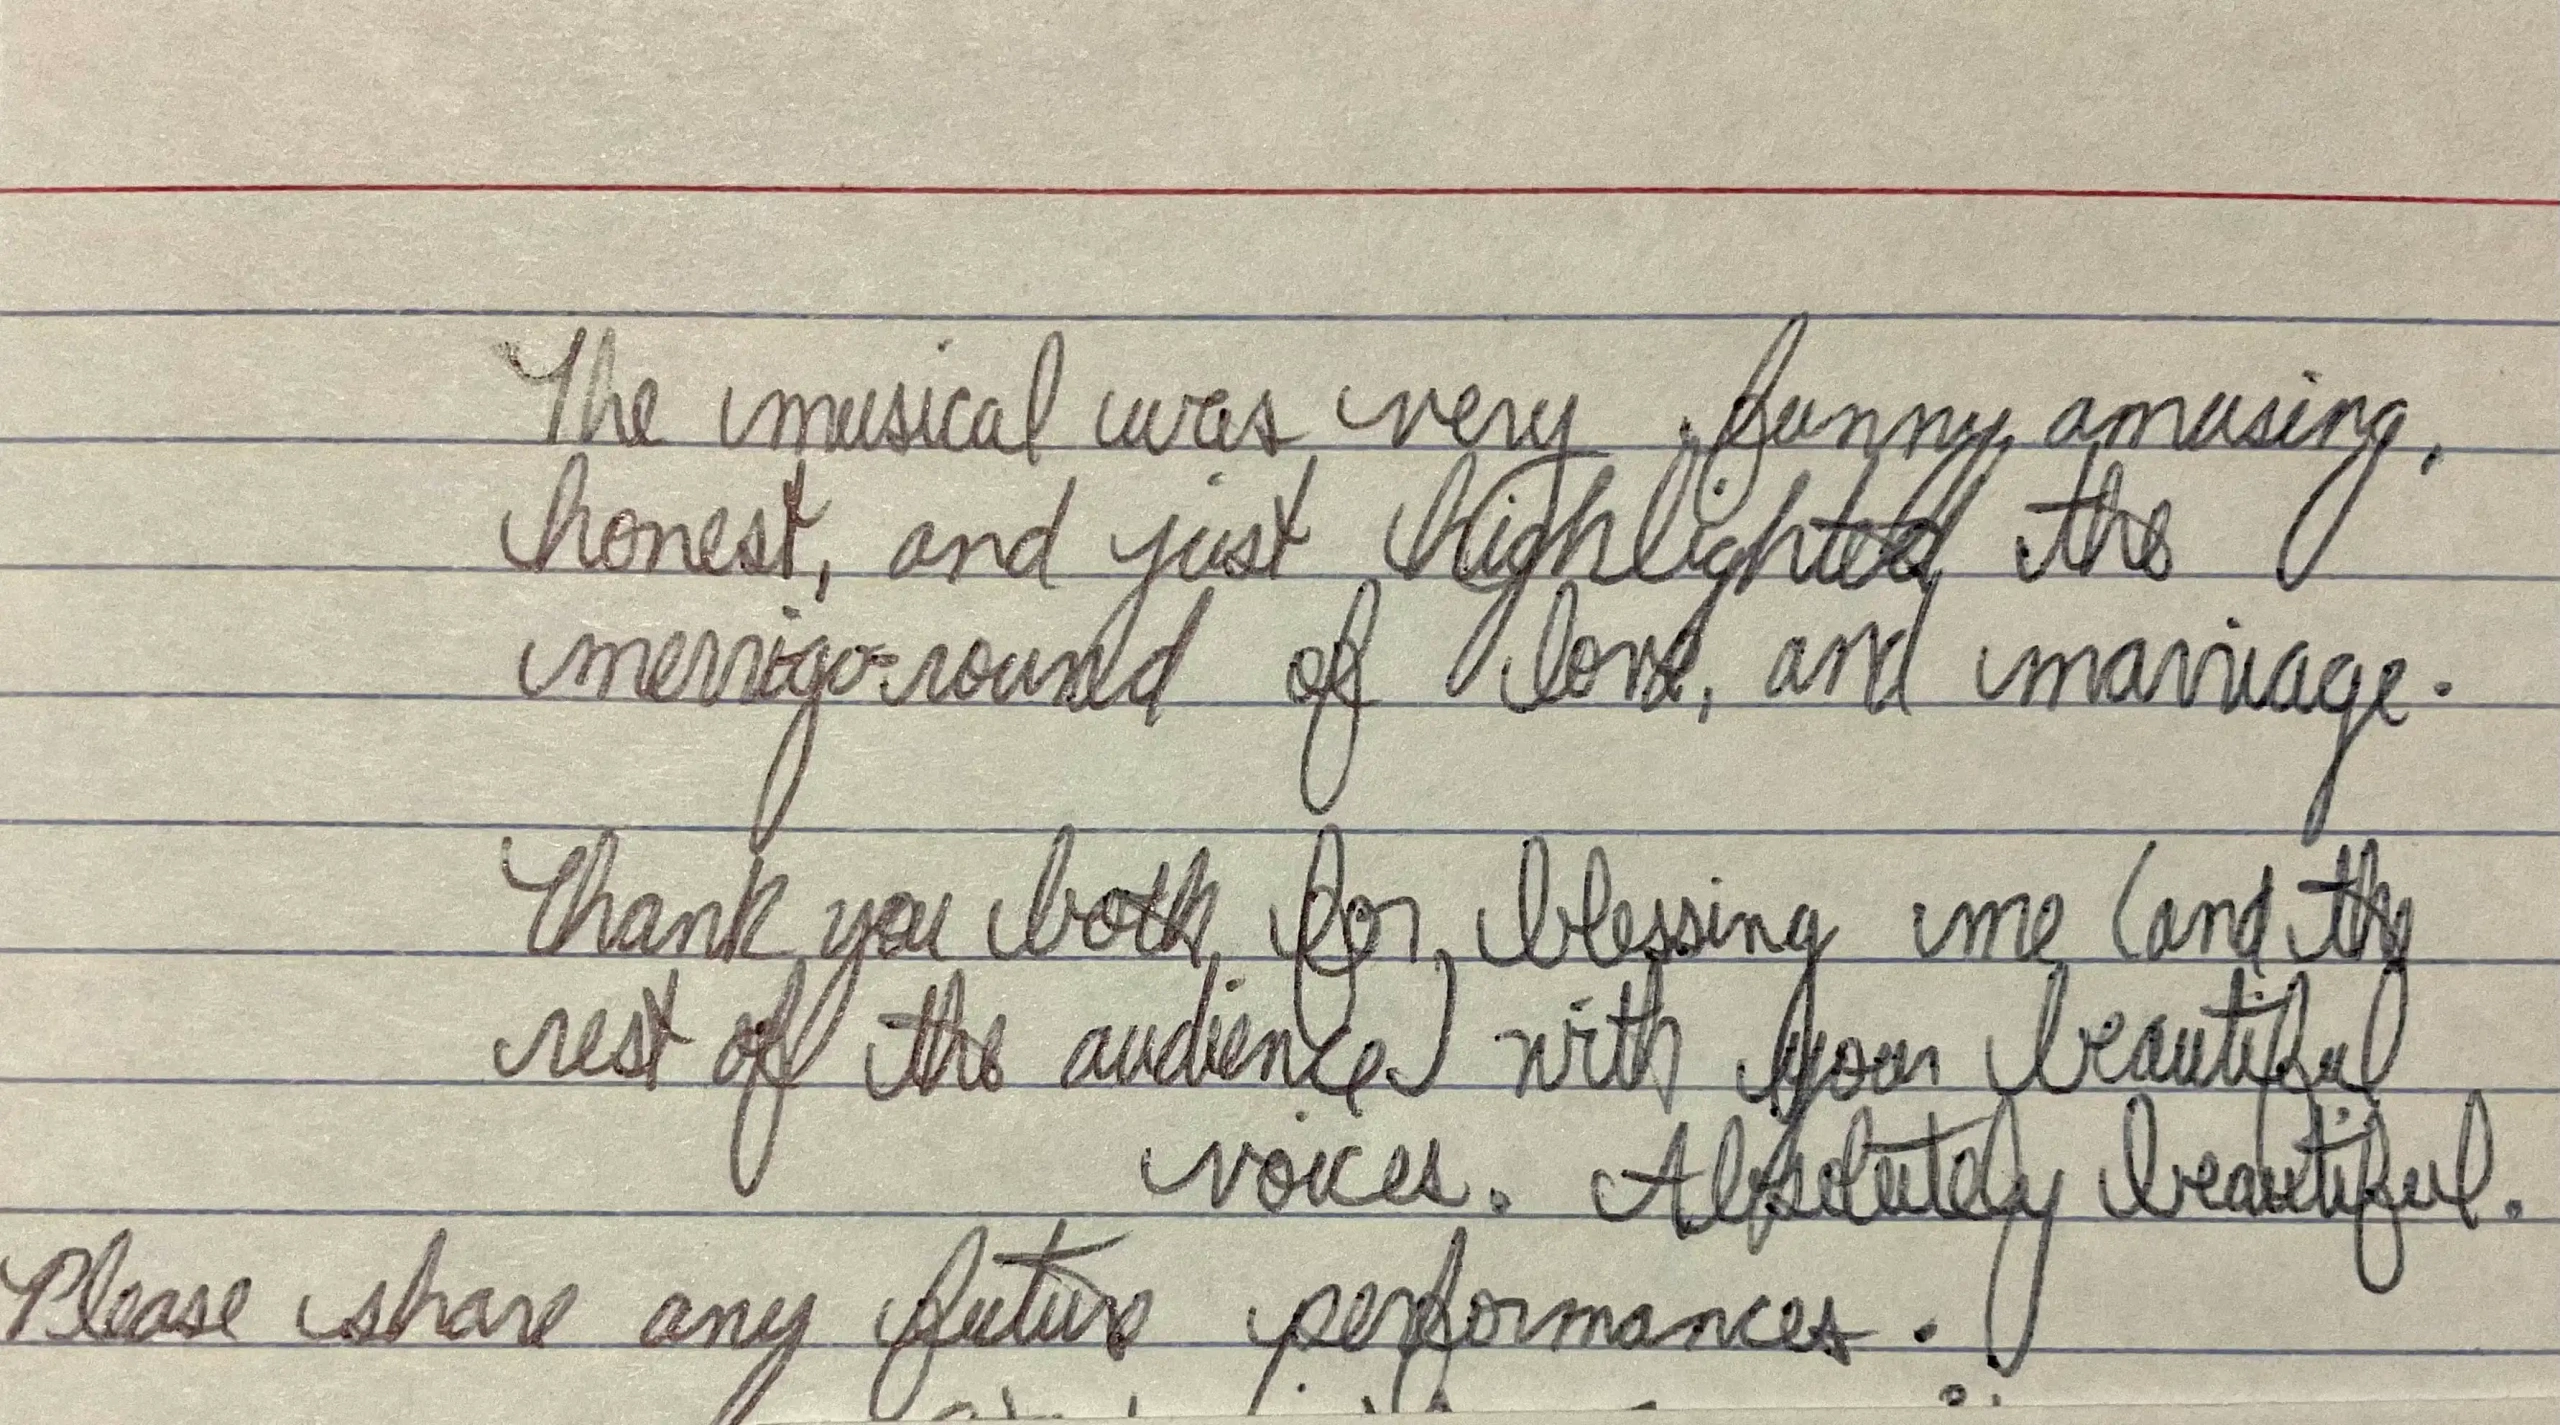 The musical was very funny, amusing,
honest, and just highlighted the
merrigo-round of love, and marriage.
Thank you both for blessing me (and the
rest of the audience) with your beautiful
voices. Absolutely beautiful.
Please share any future performances.